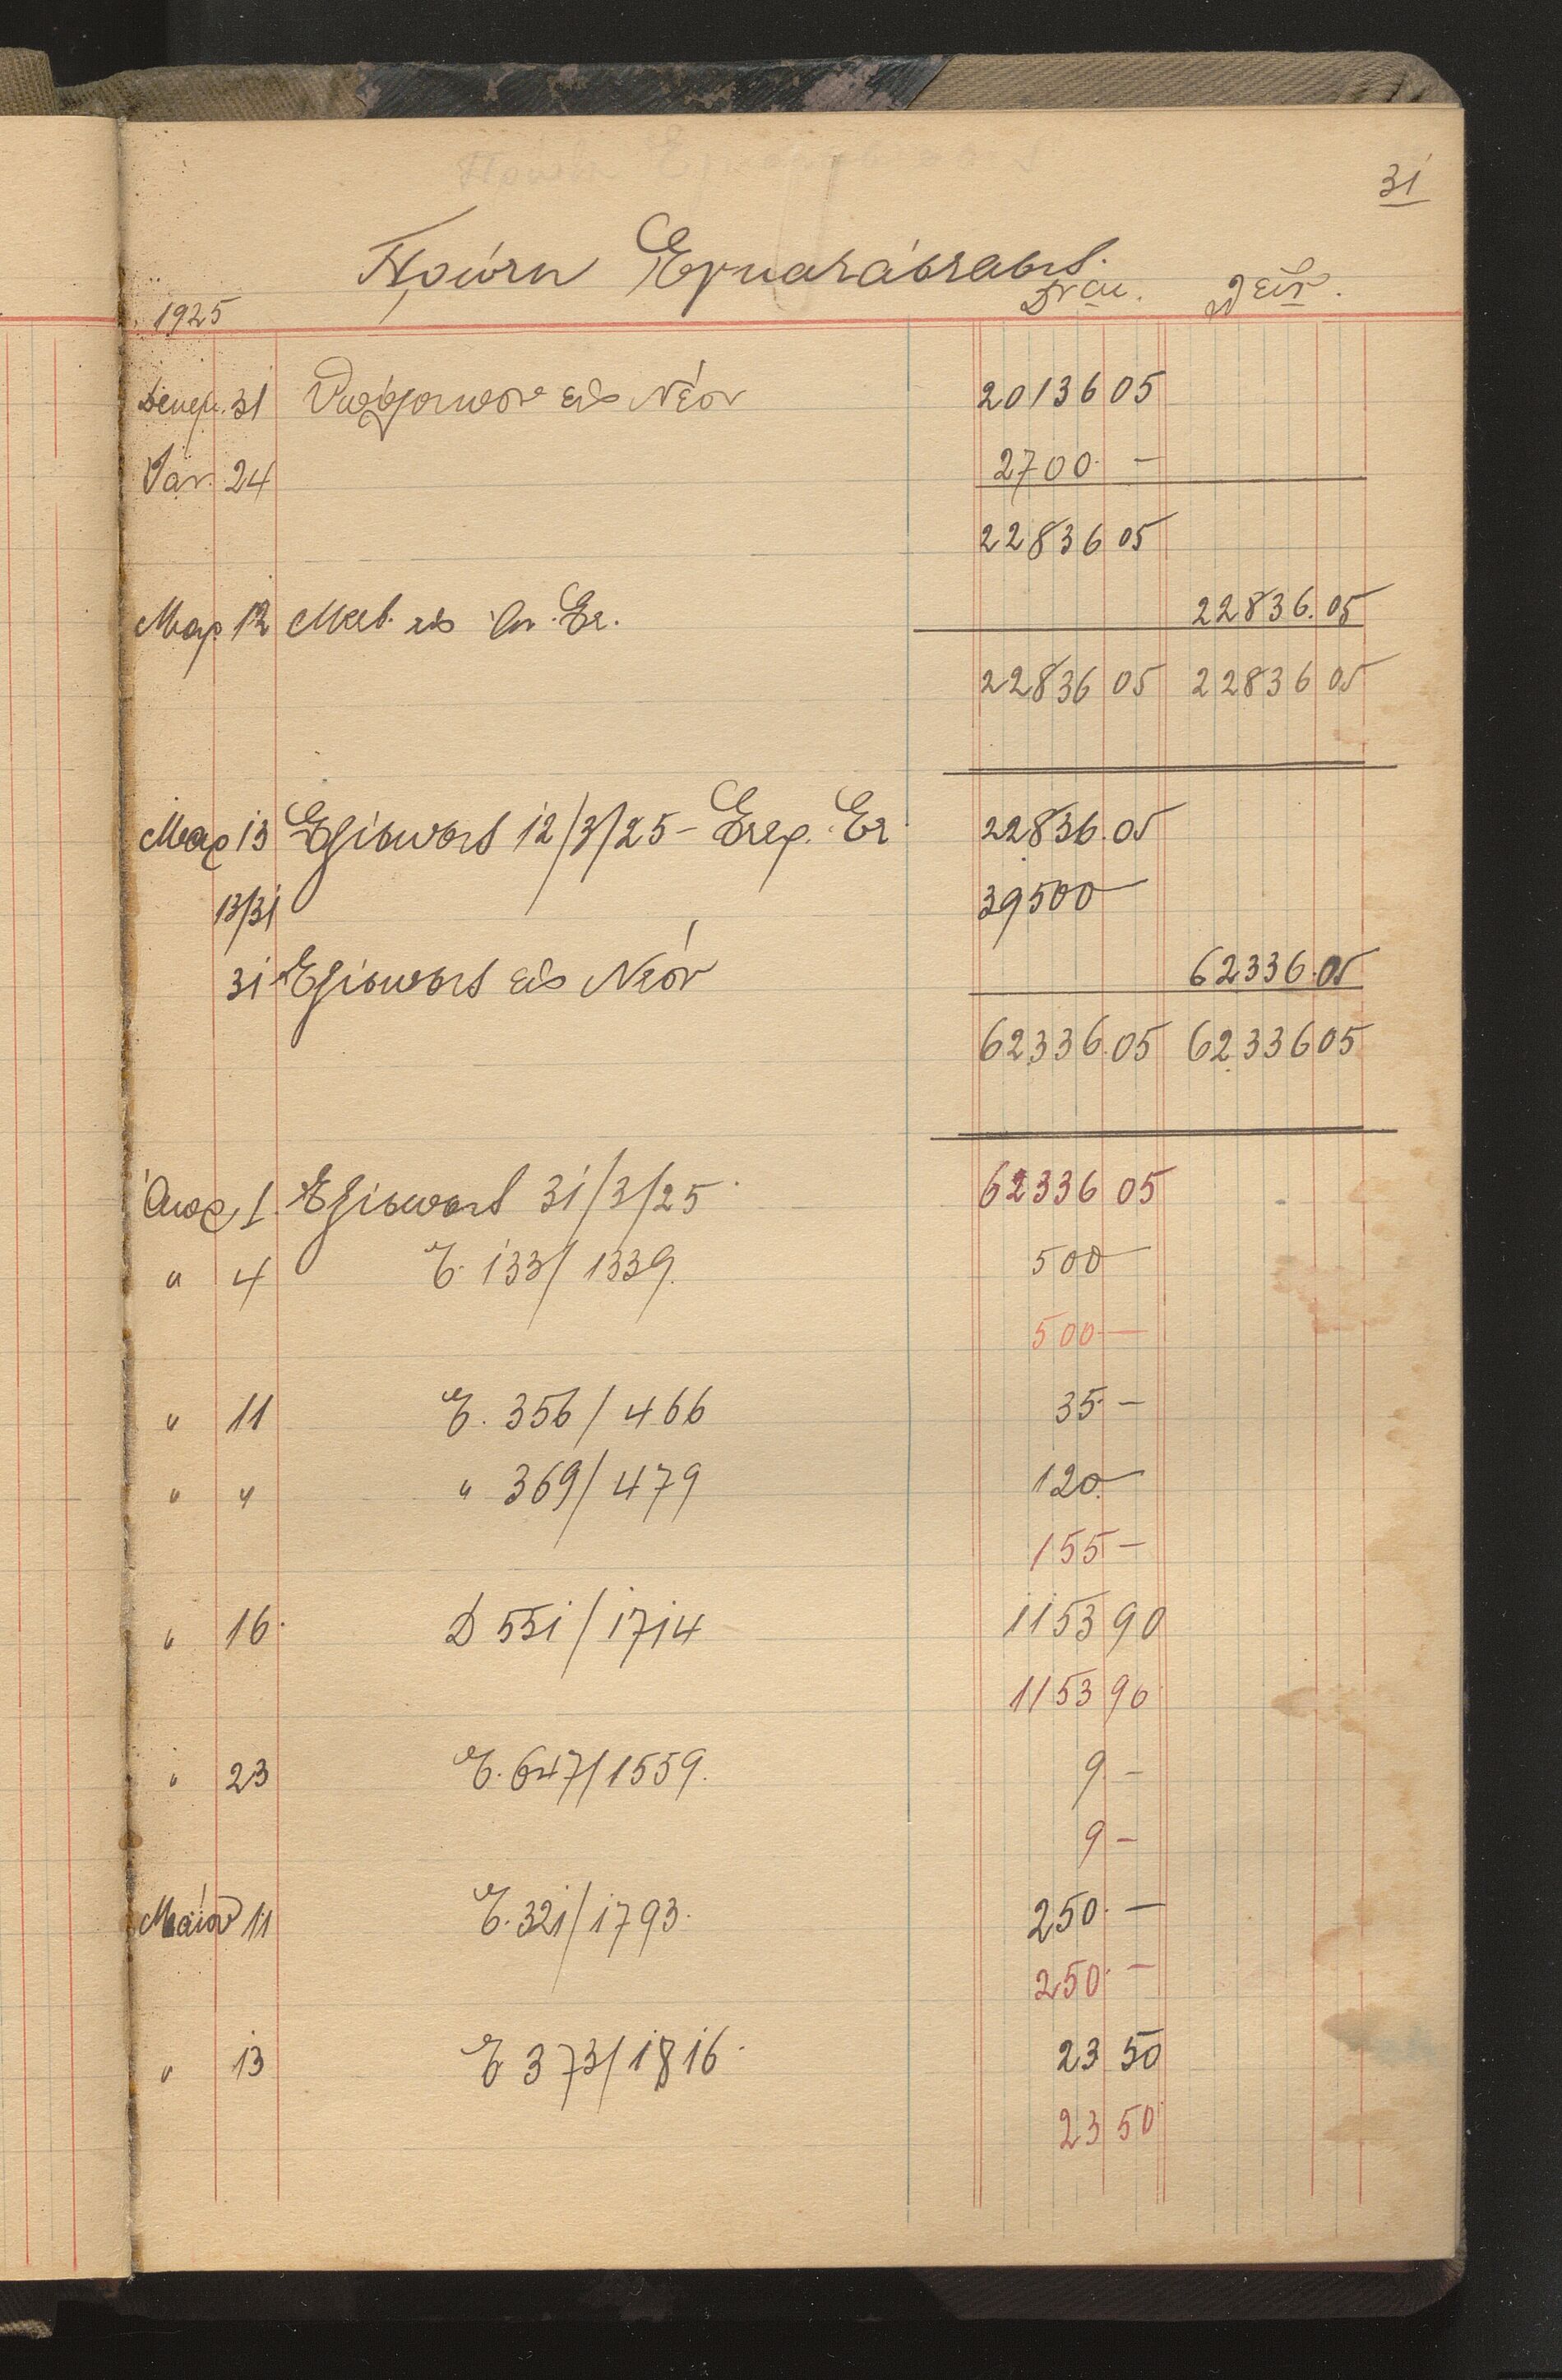 31
Πρώτη Εγκατάστασις.
1925
Δεκεμ. 31 Υπόλοιπον εις Νέον 20136 05
Ιαν. 24 2700. —
22836 05
Μαρ 12 εις Οι. Ετ. 22836.05
22836 05 22836 05
Μαρ 13 Εξίσωσις 12/3/25 - Ετερ. Ετ. 22836.05
13/31 39500 —
31 Εξίσωσις εις Νέον 62336.05
62336.05 62336 05
Απρ 1. Εξίσωσις 31/3/25 62336 05
" 4 Τ. 133/1339. 500 —
500 —
" 11 Τ. 356/466 35. —
" " " 369/479 120. —
155 —
" 16. Δ 551/1714 1153 90
1153 90
" 23 Τ. 647/1559. 9 —
9 —
Μαΐου 11 Τ. 321/1793. 250. —
250. —
" 13 Τ 373/1816. 23 50
23 50